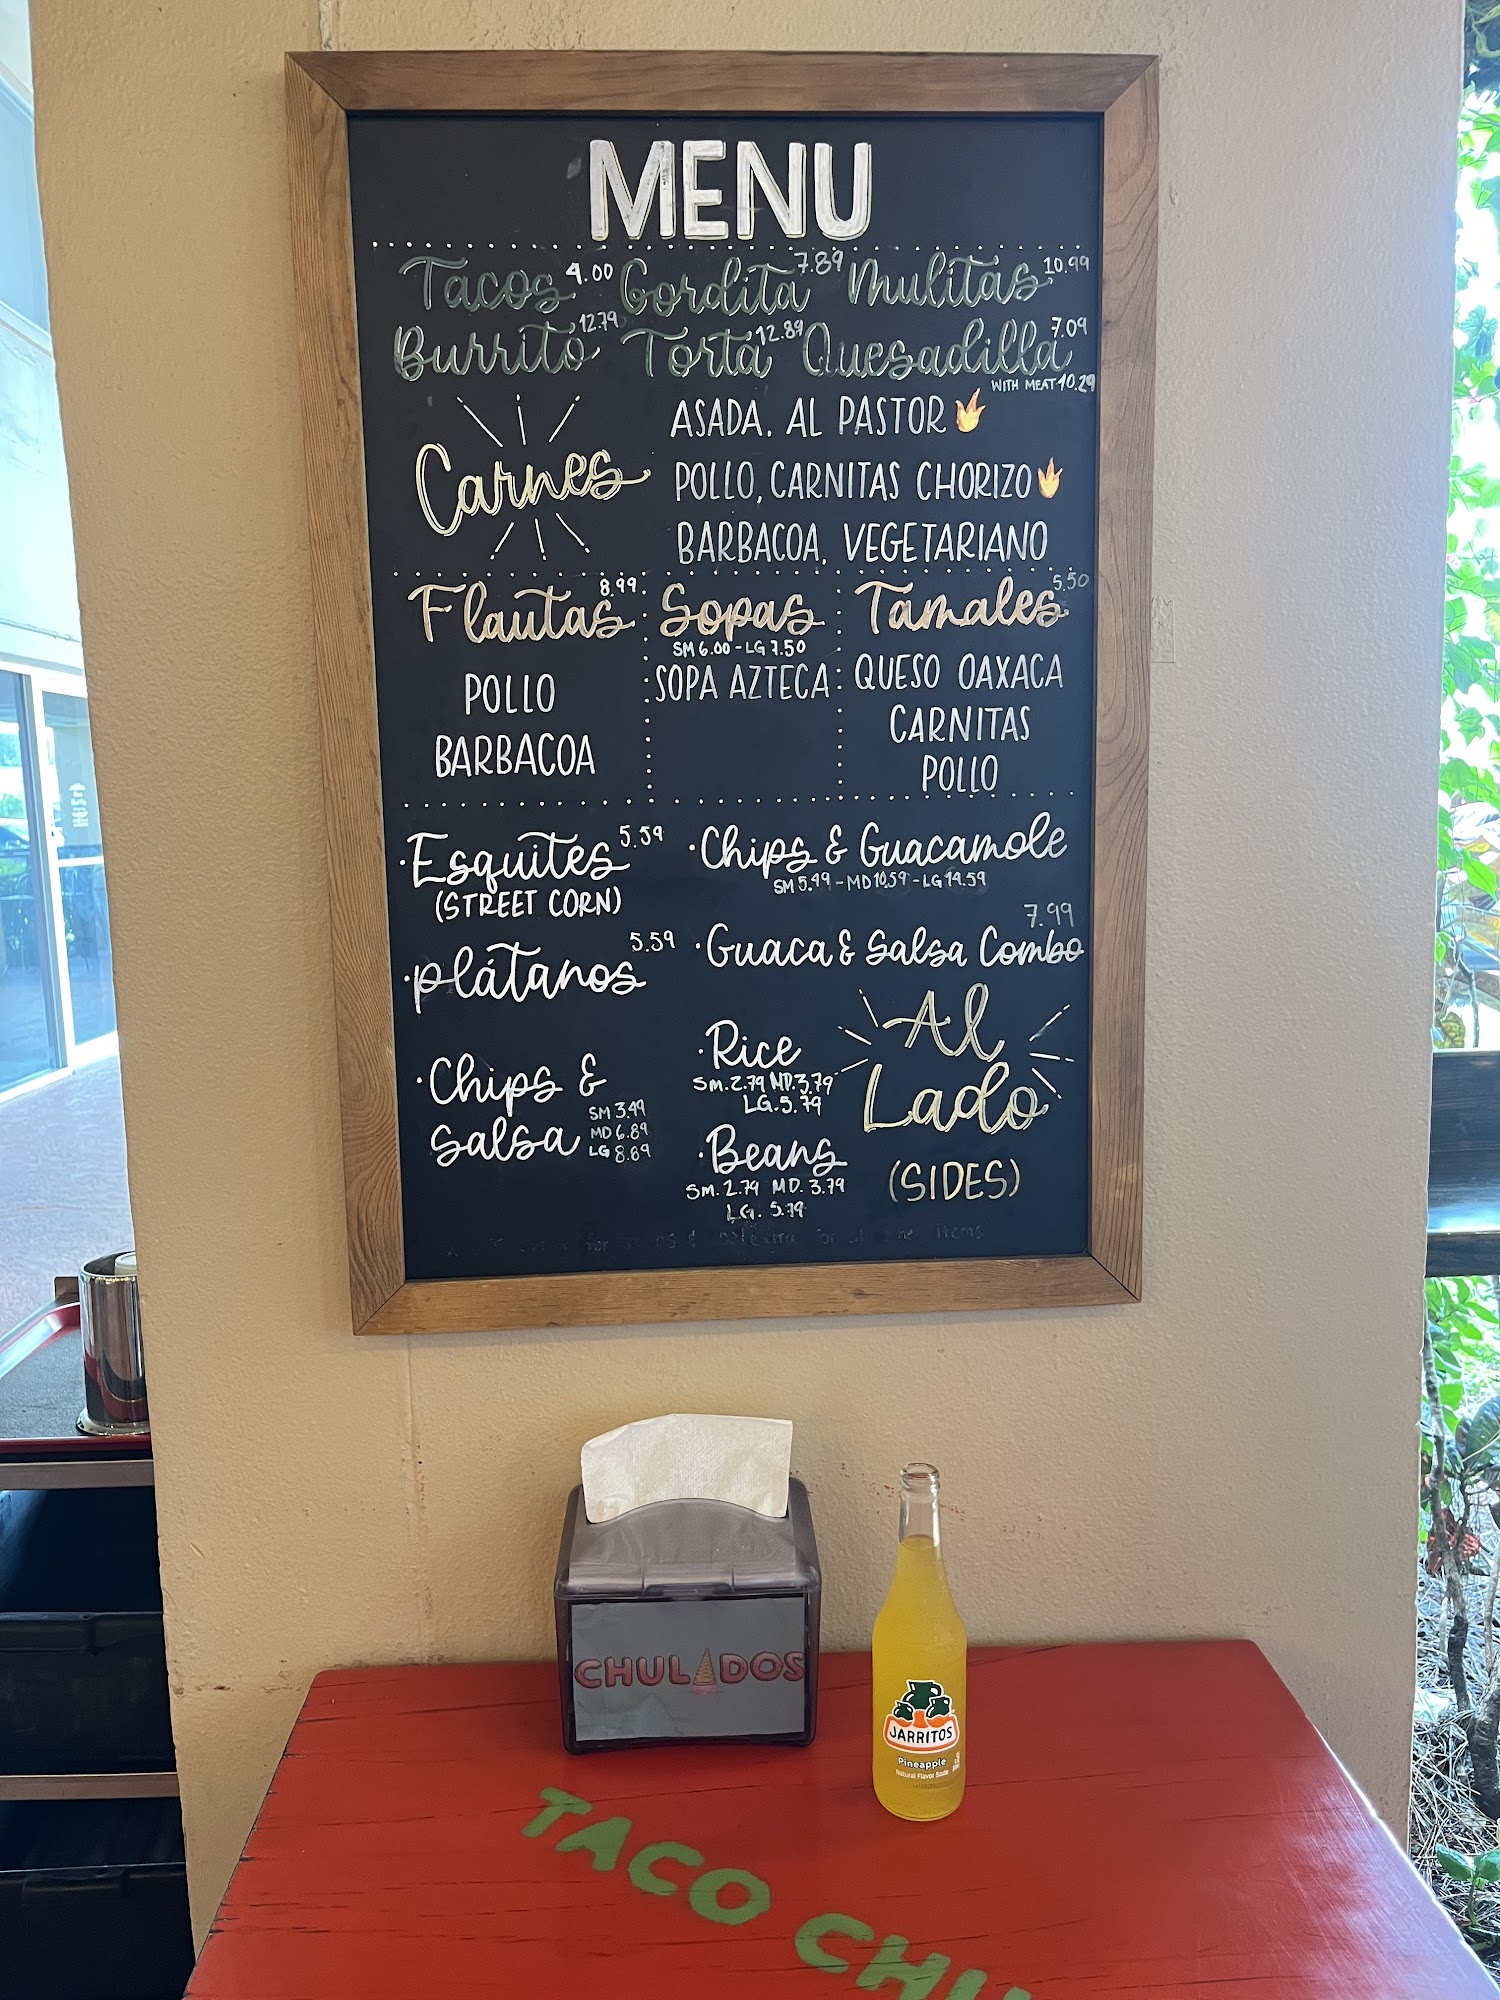 MENU
Tacos 4.00 Gordita 7.89 Mulitas 10.99
Burrito 12.79 Torta 12.89 Quesadilla 7.09
WITH MEAT 10.29
Carnes
ASADA, AL PASTOR
POLLO, CARNITAS CHORIZO
BARBACOA, VEGETARIANO
Flautas 8.99
POLLO
BARBACOA
Sopas
SM 6.00 - LG 7.50
SOPA AZTECA
Tamales 5.50
QUESO OAXACA
CARNITAS
POLLO
· Esquites 5.59
(STREET CORN)
· plátanos 5.59
· Chips &
salsa
SM 3.49
MD 6.89
LG 8.89
· Chips & Guacamole
SM 5.49 - MD 10.59 - LG 14.59
7.99
· Guaca & Salsa Combo
· Rice
SM. 2.79 MD. 3.79
LG. 5.79
· Beans
SM. 2.79 MD. 3.79
LG. 5.79
Al
Lado
(SIDES)
for extra for items
CHULADOS
JARRITOS
Pineapple
Natural Flavor Soda
TACO CHU